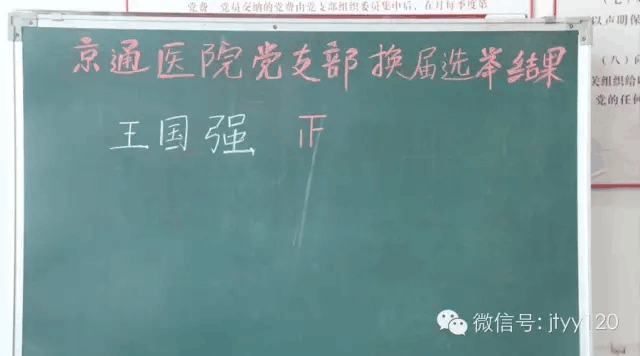 党费 党员交纳的党费由党支部组织委员集中后，在月每季度第
以声明保
（八）向
关组织给以
党的任何
京通医院党支部换届选举结果
王国强 正
微信号: jtyy120